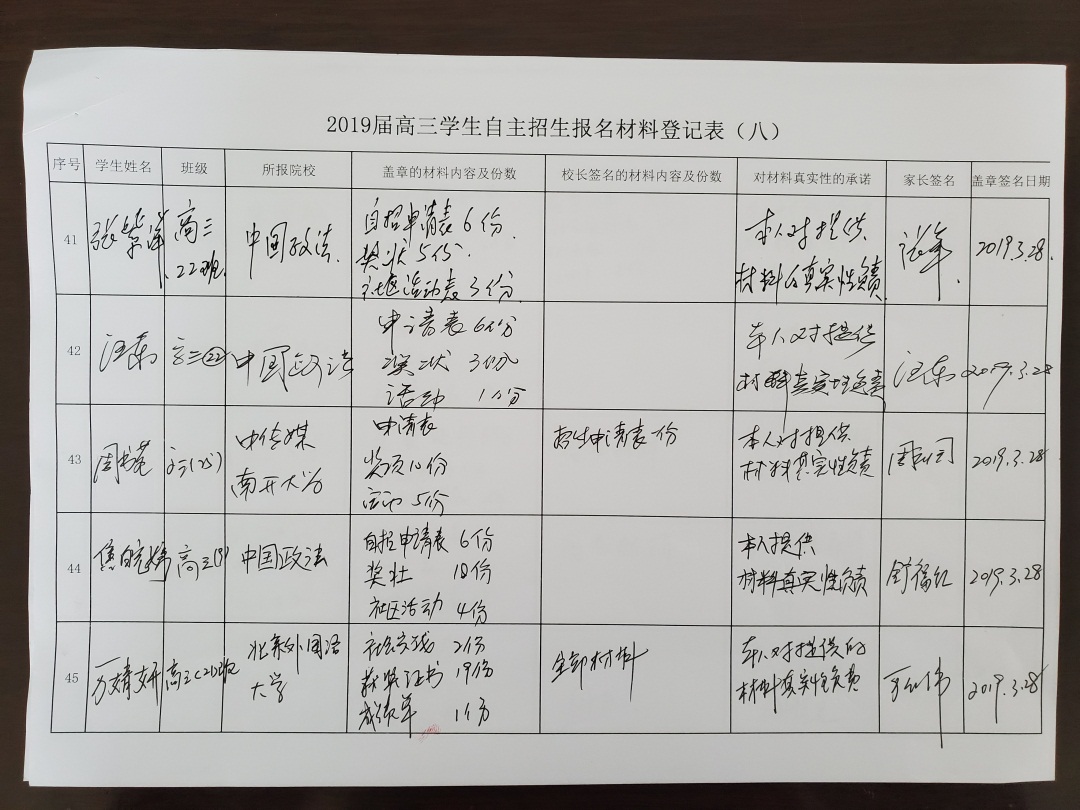 2019届高三学生自主招生报名材料登记表（八）
序号 学生姓名 班级 所报院校 盖章的材料内容及份数 校长签名的材料内容及份数 对材料真实性的承诺 家长签名 盖章签名日期
41 张紫洋 高三 22班. 中国政法. 自招申请表6份. 本人对提供 2019.3.28.
奖状5份.
社区活动表3份. 材料的真实性负责
42 汪东 高三(22) 中国政法 申请表6份 本人对提供 汪东 2019.3.28
奖状 3份
活动 1份 材料真实性负责
43 中传媒 申请表 招生申请表 份 本人对提供 2019.3.28
南开大学 奖项10份 材料真实性负责
活动 5份
44 高三 中国政法 自招申请表 6份 本人提供 2019.3.28
奖壮 18份 材料真实性负责
社区活动 4份
45 万婧妍 北京外国语 社会实践 2份 全部材料 本人对提供的 2019.3.28
大学 获奖证书 19份 材料真实性负责
成绩单 1份